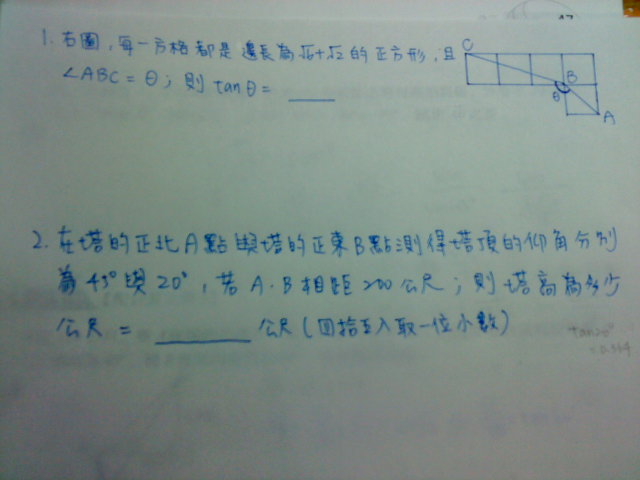 1. 右圖，每一方格都是邊長為√6+√2的正方形，且
∠ABC=θ；則tanθ=
C
B
θ
A
2. 在塔的正北A點與塔的正東B點測得塔頂的仰角分別
為45°與20°，若A.B相距200公尺；則塔高為多少
公尺 = 公尺(四捨五入取一位小數)
tan20°